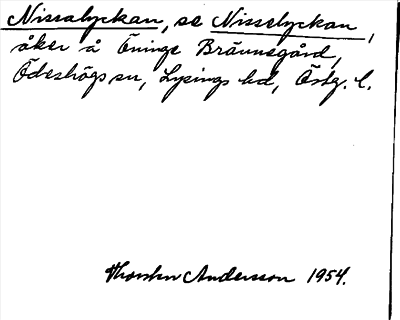 Nissalyckan, se Nisselyckan,
åker å Öninge Bräunsgård,
Ödeshögs sn, Lysings hd, Östg. l.
Thorsten Andersson 1954.